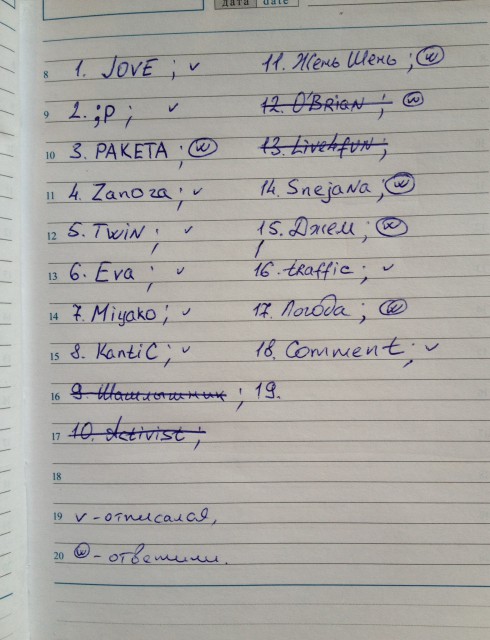 дата date
8 1. JOVE ; v 11. Жень Шень ; w
9 2. ;P ; v 12. O'BRiaN ; w
10 3. РАКЕТА ; w 13. Live4fun ;
11 4. Zanoza ; v 14. SnejaNa ; w
12 5. TwiN ; v 15. Джем ; w
13 6. Eva ; v 16. traffic ; v
14 7. Miyako ; v 17. Погода ; w
15 8. KantiC ; v 18. Comment ; v
16 9. Шашлышник ; 19.
17 10. Activist ;
18
19 v - отписался,
20 w - ответили.